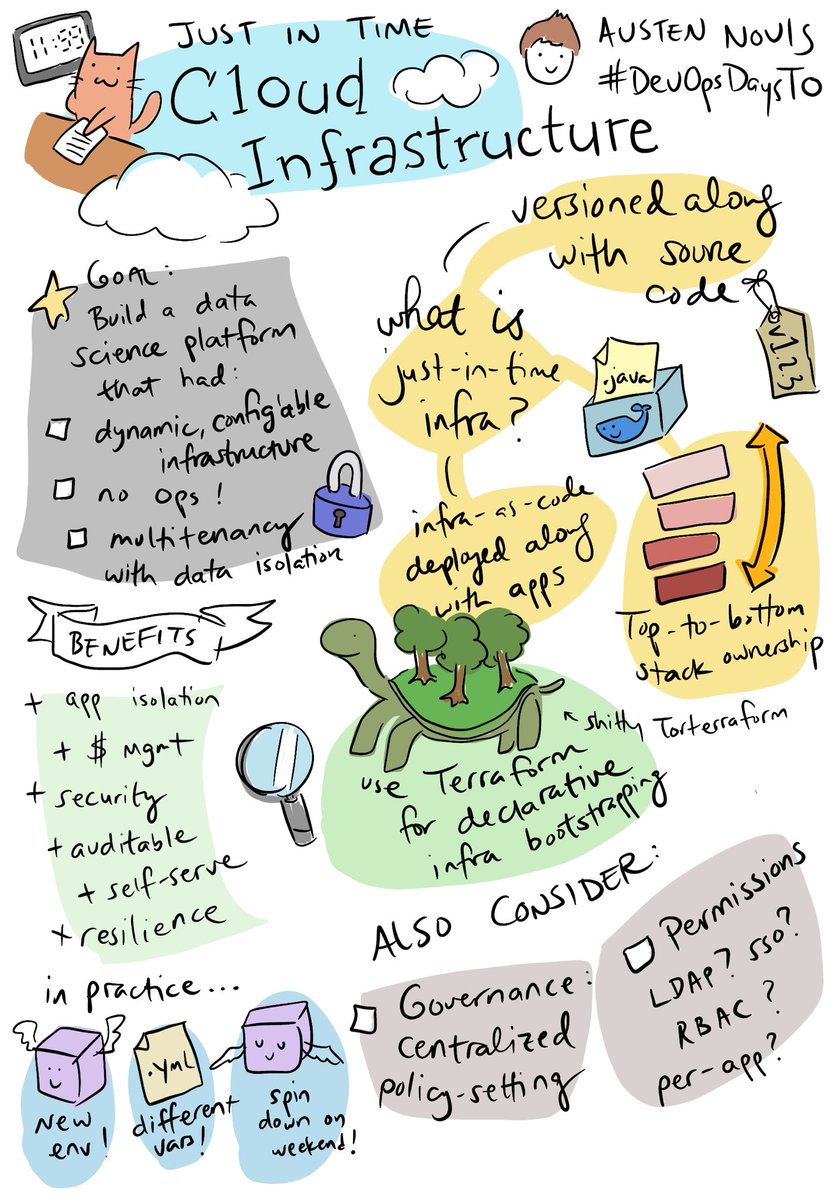 11:59
JUST IN TIME
Cloud
Infrastructure
AUSTEN NOVIS
#DevOpsDaysTO
GOAL:
Build a data
science platform
that had:
dynamic, config'able
infrastructure
no ops!
multitenancy
with data isolation
what is
just-in-time
infra?
versioned along
with source
code
v1.2.3
.java
infra-as-code
deployed along
with apps
Top-to-bottom
stack ownership
BENEFITS
+ app isolation
+ $ mgmt
+ security
+ auditable
+ self-serve
+ resilience
← shitty Torterraform
use Terraform
for declarative
infra bootstrapping
in practice...
New
env!
.yml
different
vars!
spin
down on
weekend!
ALSO CONSIDER:
Governance:
centralized
policy-setting
Permissions
LDAP? SSO?
RBAC?
per-app?